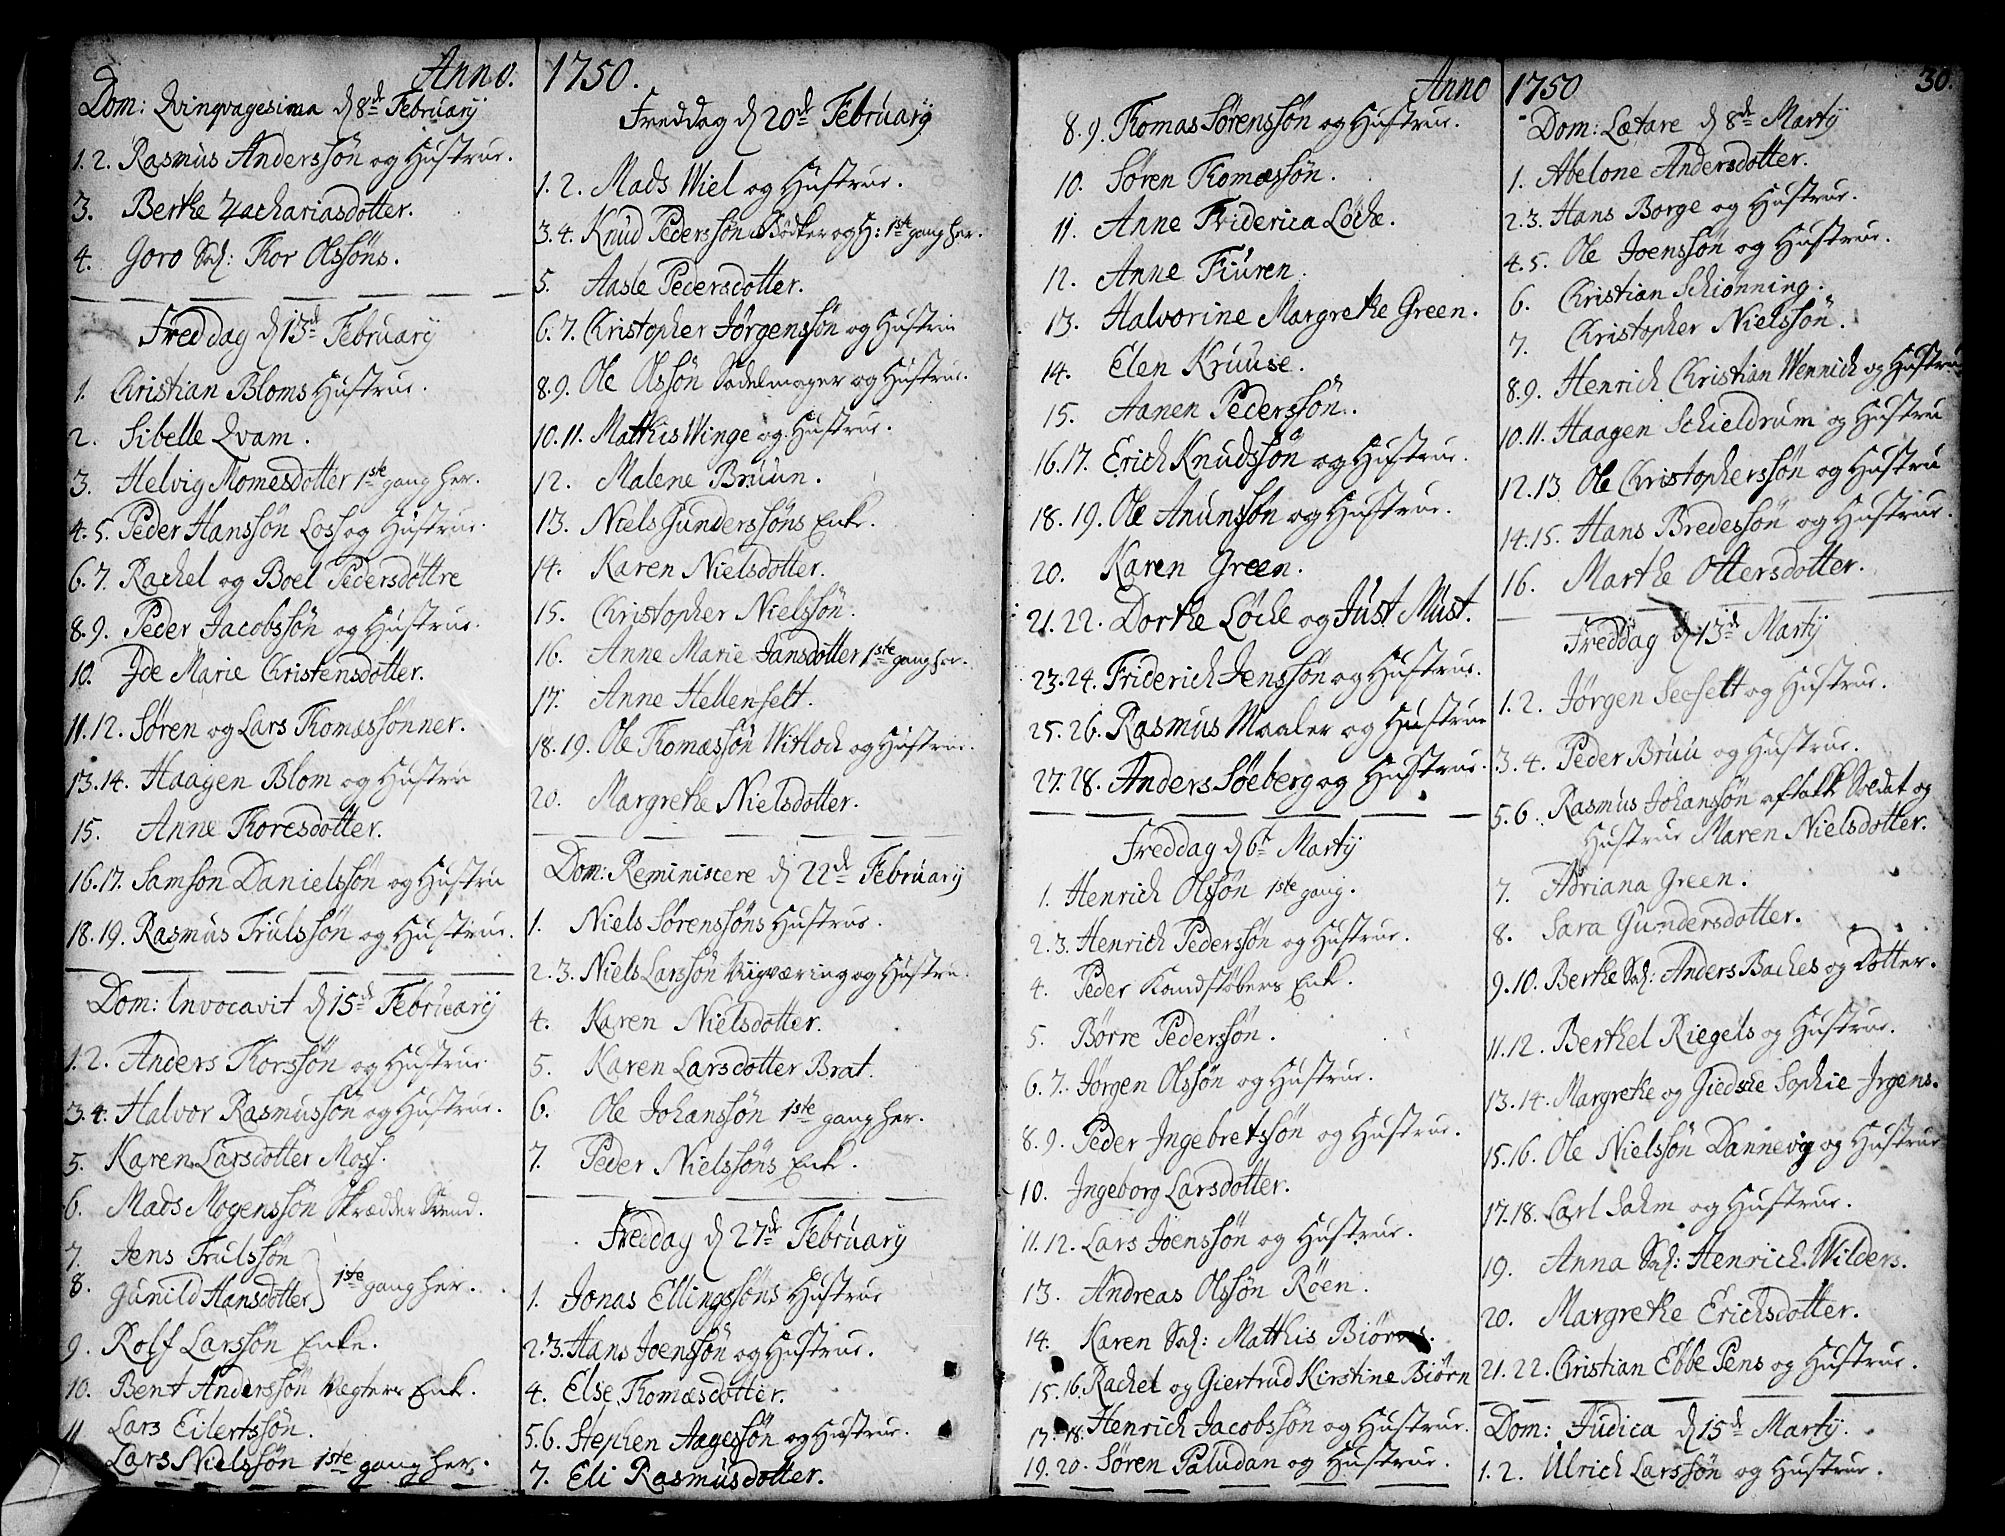 Anno. 1750.
Dom: Qvinqvagesima d 8de February
1. 2. Rasmus Anderssøn og Hustrue.
3. Berthe Zachariasdotter.
4. Goro Sal: Thor Olssøns.
Freddag d 13de February
1. Christian Bloms Hustrue.
2. Sibelle Qvam.
3. Helvig Momesdotter 1ste gang her.
4. 5. Peder Hanssøn Loss og Hustrue.
6. 7. Rachel og Boel Pedersdøttre
8. 9. Peder Jacobssøn og Hustrue.
10. Ide Marie Christensdotter.
11. 12. Søren og Lars Thomæssønner.
13. 14. Haagen Blom og Hustru
15. Anne Thoresdotter.
16. 17. Samson Danielssøn og Hustru
18. 19. Rasmus Trulssøn og Hustrue.
Dom: Invocavit d 15de February
1. 2. Anders Thorssøn og Hustrue
3. 4. Halvor Rasmussøn og Hustrue.
5. Karen Larsdotter Moss.
6. Mads Mogenssøn Skrædder Svend.
7. Jens Trulssøn
8. Gunild Hansdotter 1ste gang her.
9. Rolf Larssøn Enke.
10. Bent Anderssøn Vegters Enke.
11. Lars Eilertssøn.
Lars Nielssøn 1ste gang her.
Freddag d 20de February
1. 2. Mads Wiel og Hustrue.
3. 4. Knud Pederssøn Bødker og H: 1ste gang her.
5. Aasle Pedersdotter.
6. 7. Christopher Jørgenssøn og Hustrue
8. 9. Ole Olssøn Sadelmager og Hustrue.
10. 11. Mathis Winge og Hustrue.
12. Malene Bruun.
13. Niels Gunderssøns Enke.
14. Karen Nielsdotter.
15. Christopher Nielssøn.
16. Anne Marie Jansdotter 1ste gang her.
17. Anne Hellenfelt.
18. 19. Ole Thomæssøn Witloch og Hustrue.
20. Margrethe Nielsdotter.
Dom: Reminiscere d 22de February
1. Niels Sørenssøns Hustrue.
2. 3. Niels Larssøn og Hustru.
4. Karen Nielsdotter.
5. Karen Larsdotter Brat.
6. Ole Johanssøn 1ste gang her.
7. Peder Nielssøns Enke.
Freddag d 27de February
1. Jonas Ellingssøns Hustrue
2. 3. Hans Joenssøn og Hustrue.
4. Else Thomæsdotter.
5. 6. Stephen Aagessøn og Hustrue.
7. Eli Rasmusdotter.
Anno 1750 30.
8. 9. Thomas Sørenssøn og Hustrue.
10. Søren Thomæssøn.
11. Anne Friderica Løche.
12. Anne Fiuren.
13. Halvorine Margrethe Green.
14. Elen Kruuse.
15. Aanen Pederssøn.
16. 17. Erich Knudssøn og Hustrue.
18. 19. Ole Anunssøn og Hustrue.
20. Karen Green.
21. 22. Dorthe Løche og Just Must.
23. 24. Friderich Jenssøn og Hustrue.
25. 26. Rasmus Maaler og Hustrue
27. 28. Anders Søeberg og Hustrue.
Freddag d 6te Marty
1. Henrich Olssøn 1ste gang.
2. 3. Henrich Pederssøn og Hustrue.
4. Peder Kandstøbers Enke.
5. Børre Pederssøn.
6. 7. Jørgen Olssøn og Hustrue.
8. 9. Peder Ingebretssøn og Hustrue.
10. Ingeborg Larsdotter.
11. 12. Lars Joenssøn og Hustrue.
13. Andreas Olssøn Røen.
14. Karen Sal: Matthis Biørns.
15. 16. Rachel og Giertrud Kirstine Biørn
17. 18. Henrich Jacobssøn og Hustrue.
19. 20. Søren Paludan og Hustrue.
Dom: Lætare d 8de Marty
1. Abelone Andersdotter.
2. 3. Hans Borge og Hustrue.
4. 5. Ole Joenssøn og Hustrue.
6. Christian Schiønning.
7. Christopher Nielssøn.
8. 9. Henrich Christian Wennich og Hustrue
10. 11. Haagen Schieldrum og Hustru
12. 13. Ole Christopherssøn og Hustru
14. 15. Hans Bredessøn og Hustrue.
16. Marthe Ottersdotter.
Freddag d 13de Marty
1. 2. Jørgen Seefelt og Hustrue.
3. 4. Peder Bruu og Hustrue.
5. 6. Rasmus Johanssøn aftakk Soldat og
Hustrue Maren Nielsdotter.
7. Adriana Green.
8. Sara Gundersdotter.
9. 10. Berthe Sal: Anders Baches og Dotter.
11. 12. Berthel Riegels og Hustrue.
13. 14. Margrethe og Giedsche Sophie Irgens.
15. 16. Ole Nielssøn Dannevig og Hustrue
17. 18. Carl Sahm og Hustrue.
19. Anna Sal: Henrich Wilders.
20. Margrethe Erichsdotter.
21. 22. Christian Ebbe Pens og Hustrue.
Dom: Judica d 15de Marty.
1. 2. Ulrich Larssøn og Hustrue.